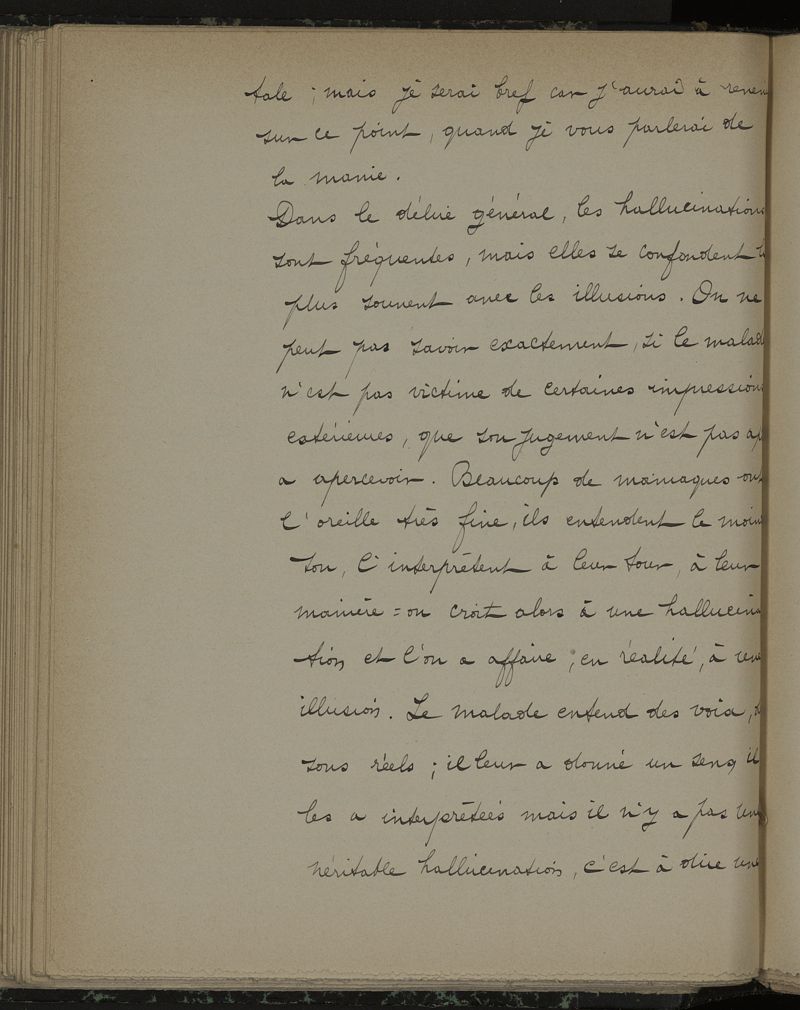 tale ; mais je serai bref car j'aurai à reven
sur ce point, quand je vous parlerai de
la manie.
Dans le délire général, les hallucinations
sont fréquentes, mais elles se confondent l
plus souvent avec les illusions. On ne
peut pas savoir exactement, si le malad
n'est pas victime de certaines impressions
extérieures, que son jugement n'est pas ap
a apercevoir. Beaucoup de maniaques ont
l'oreille très fine, ils entendent le moin
son, l'interprètent à leur tour, à leur
manière = on croit alors à une hallucina
tion et l'on a affaire, en réalité, à une
illusion. Le malade entend des voix, d
sons réels ; il leur a donné un sens, il
les a interprétées mais il n'y a pas une
véritable hallucination, c'est à dire une